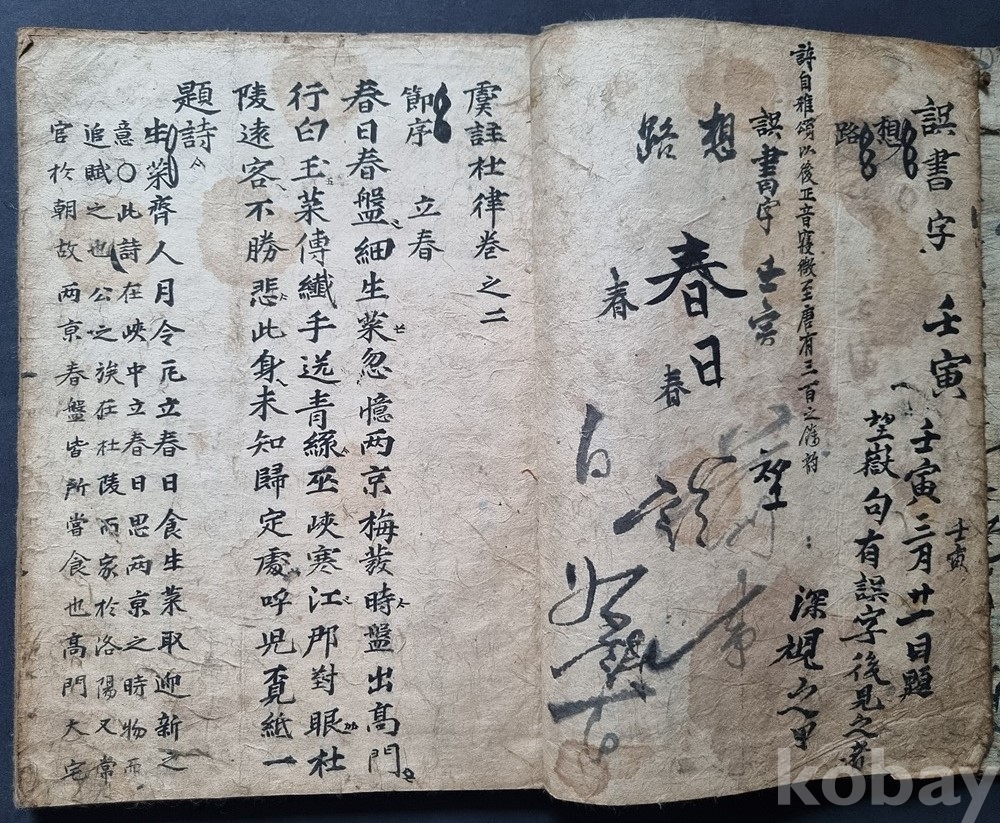 誤書字 壬寅
壬寅
壬寅三月廿一日題
望嶽句有誤字後見之者
想
路
深視之甲
許自雅頌以後正音寢微至唐有三百之
誤書字 壬寅
想
路
春日
春
春
虞註杜律卷之二
節序 立春
春日春盤細生菜忽憶两京梅發時盤出高門
行白玉菜傳纖手送青絲巫峽寒江那對眼杜
陵遠客不勝悲此身未知歸定處呼児覓紙一
題詩
生菜齊人月令凡立春日食生菜取迎新之
意〇此詩在峽中立春日思两京之時物而
追賦之也公之族在杜陵而家於洛陽又常
官於朝故两京春盤皆所嘗食也高門大宅
kobay